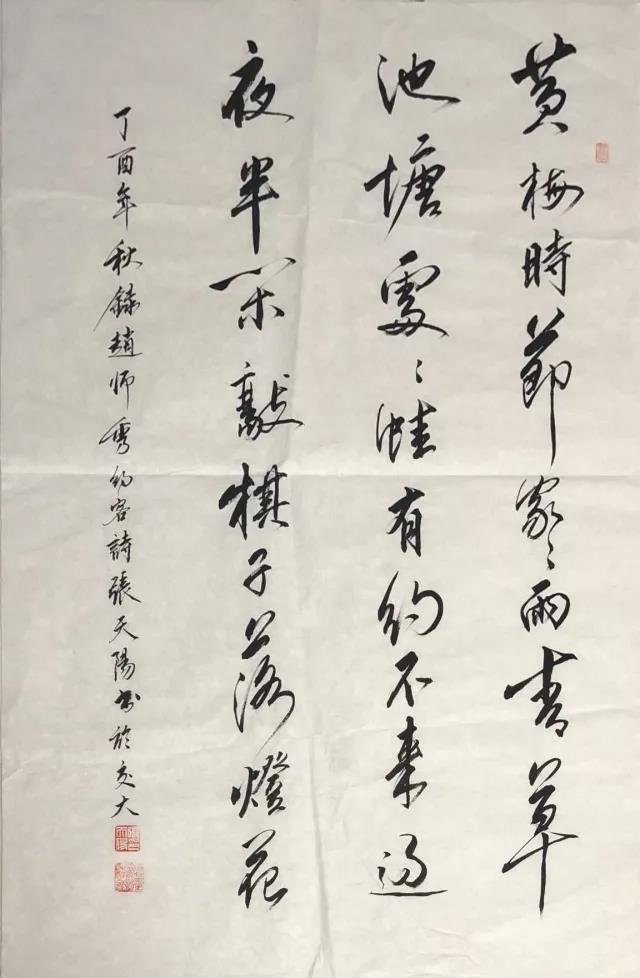 黃梅時節家〻雨青草
池塘處〻蛙有約不來過
夜半閑敲棋子落燈花
丁酉年秋錄趙師秀約客詩張天陽書於交大